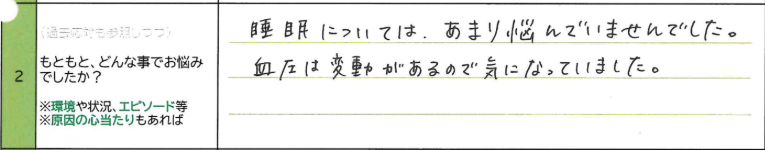 (過去応対も参照しつつ)
2
もともと、どんな事でお悩み
でしたか?
※環境や状況、エピソード等
※原因の心当たりもあれば
睡眠については、あまり悩んでいませんでした。
血圧は変動があるので気になっていました。